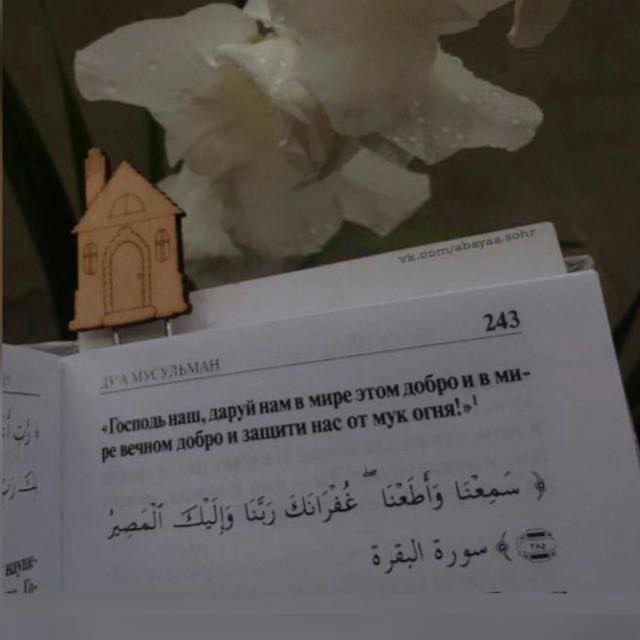 vk.com/abayaa.sohr
243
ДУ'А МУСУЛЬМАН
«Господь наш, даруй нам в мире этом добро и в ми-
ре вечном добро и защити нас от мук огня!»¹
﴿ سَمِعْنَا وَأَطَعْنَا ۖ غُفْرَانَكَ رَبَّنَا وَإِلَيْكَ الْمَصِيرُ
﴾ سورة البقرة